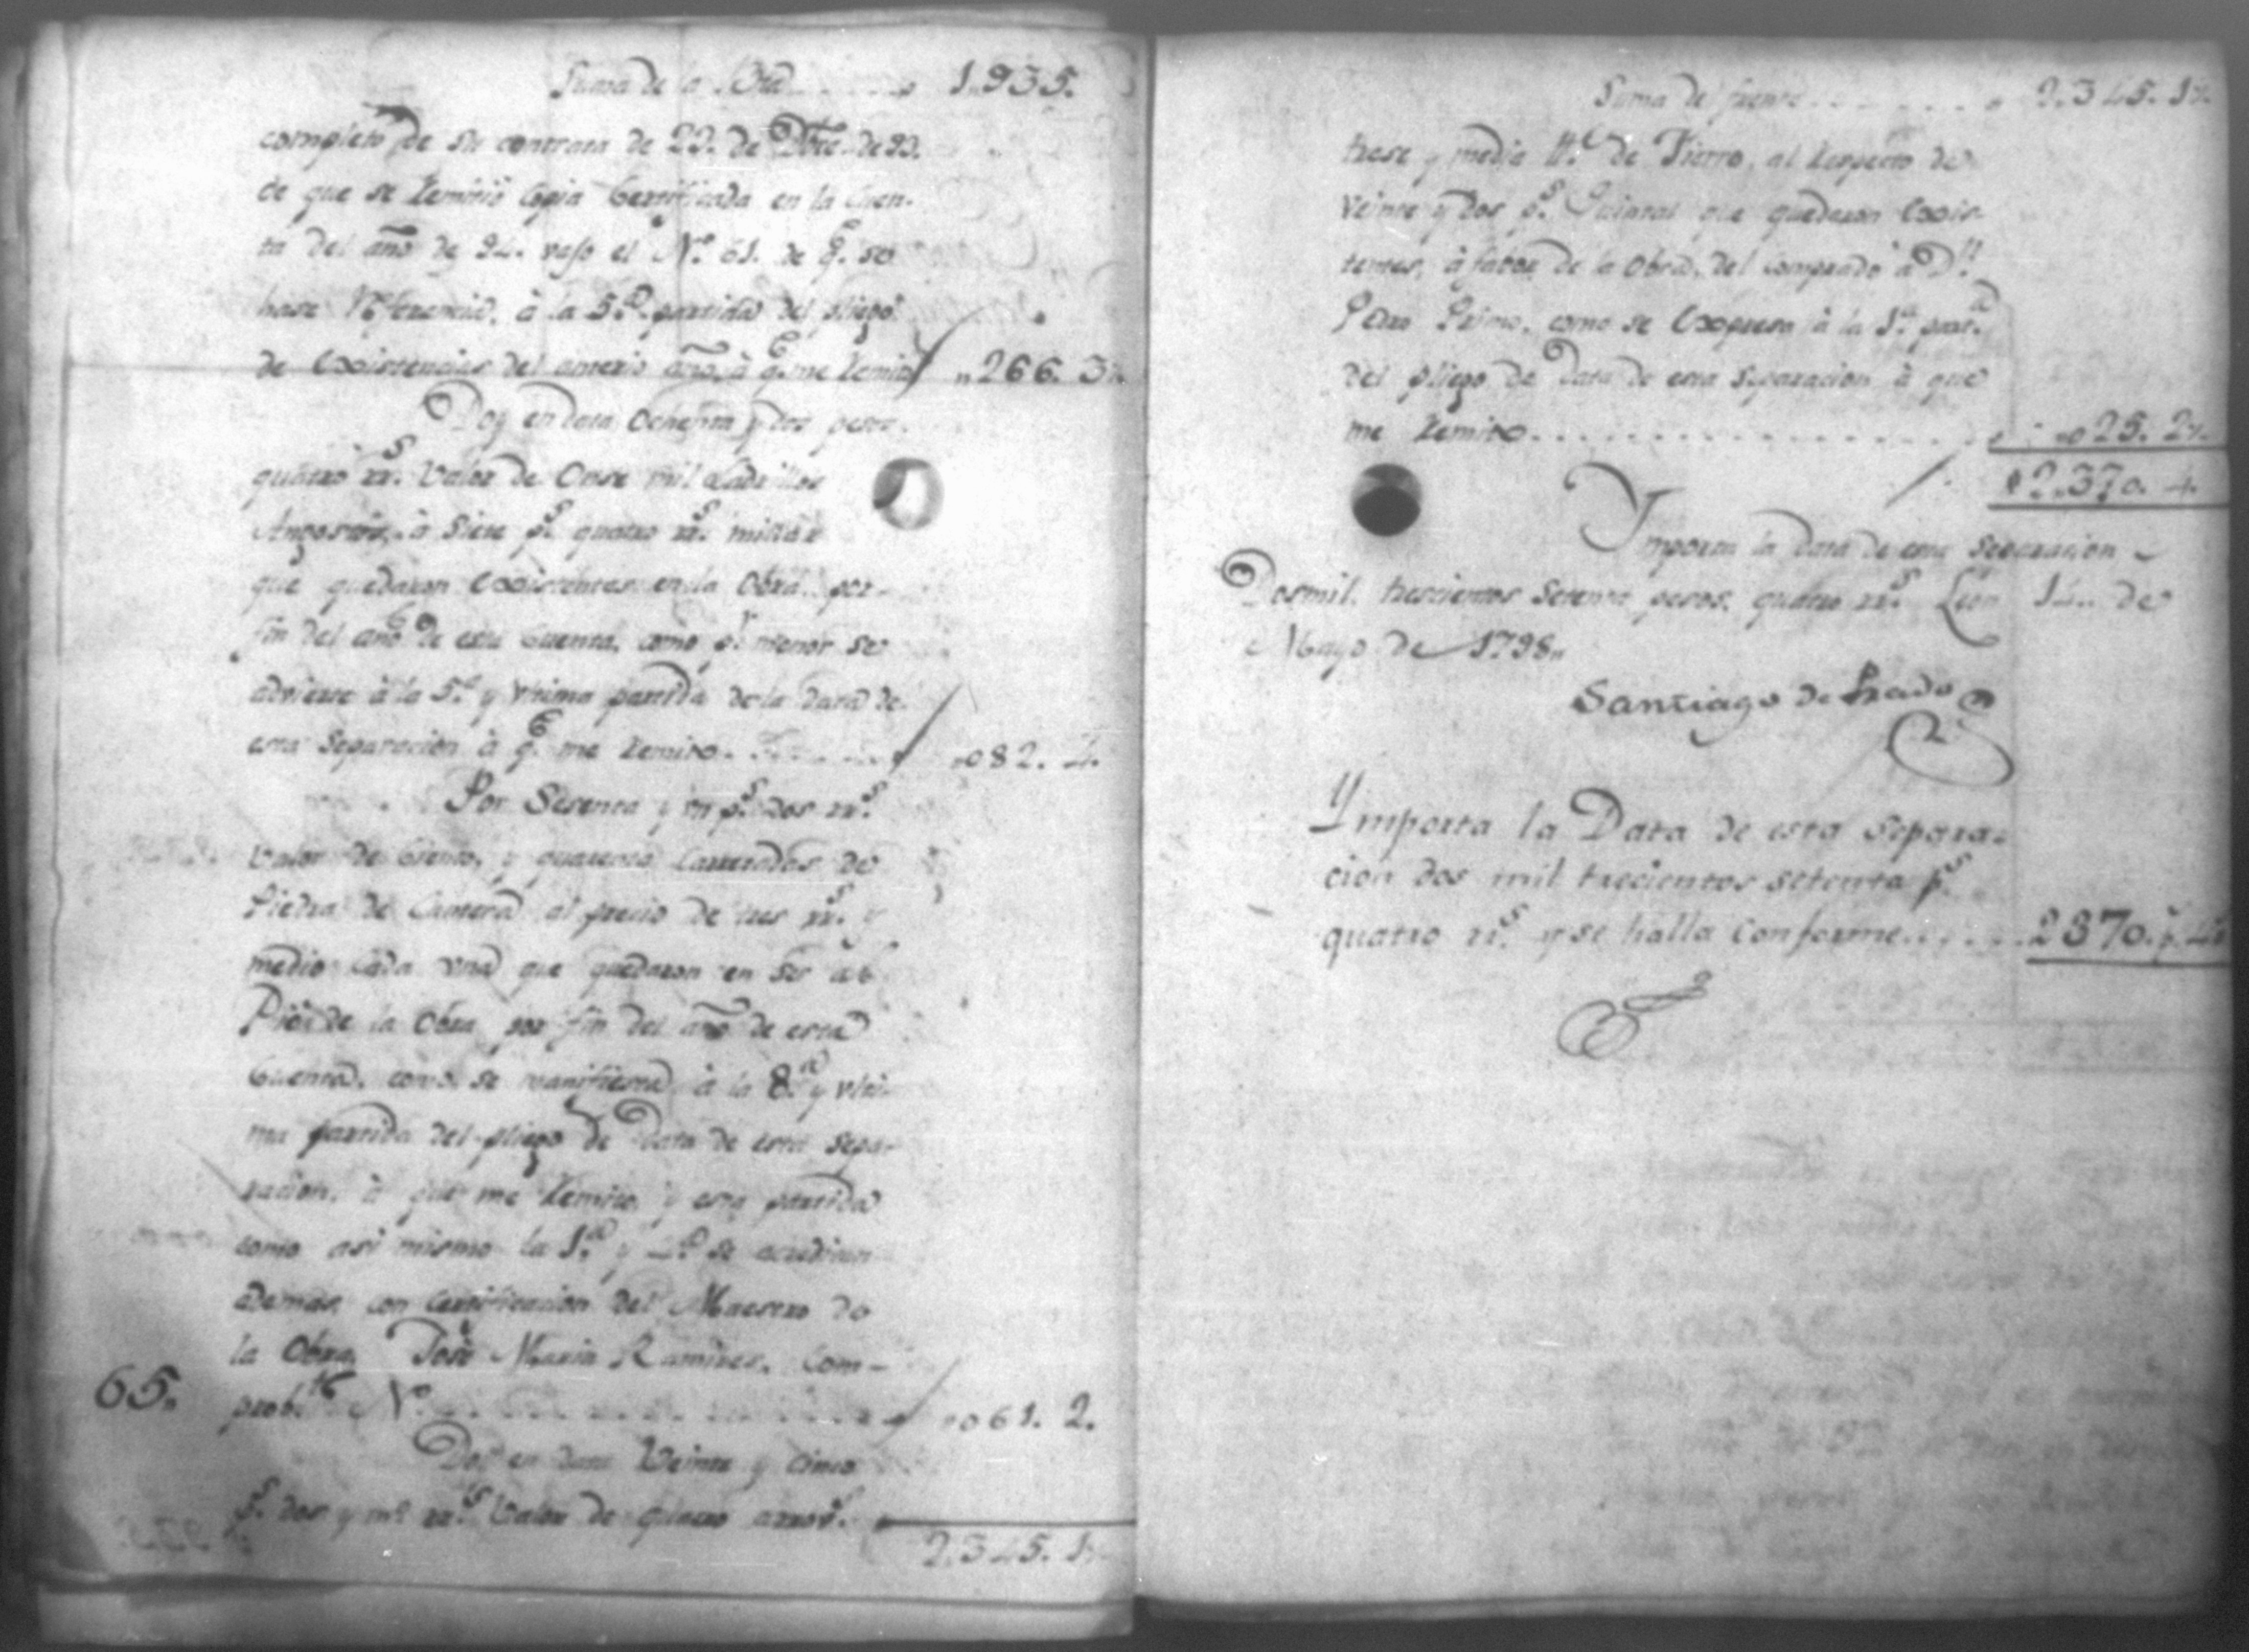 Suma de la Bta........ 1,935.
completo de su contrata de 23. de Dbre. de 93.
de que se remitió Copia Certificada en la Cuen-
ta del año de 94. vajo el N.º 61. de q.e se
hase referencia, à la 5.a partida del pliego
de Existencias del anterio año, à q.e me remito 266. 3½
Doy en data Ochenta y dos pesos
quatro rr.s Valor de Onse mil Ladrillos
Angostos, à Siete p.s quatro rr.s millar
que quedaron Existentes en la Obra por
fin del año de esta Cuenta, como p.r menor se
advierte à la 5.a y vltima partida de la data de
esta Separacion à q.e me remito. ....... 082. 4.
Por Sesenta y vn p.s dos rr.s
Valor de Ciento, y quarenta Carretadas de
Piedra de Cantera al precio de tres rr.s y
medio cada vna que quedaron en ser al
Pie de la Obra por fin del año de esta
Cuenta, como se manifiesta à la 8.a y vlti-
ma partida del pliego de Data de esta sepa-
racion, à que me remito, y esta partida
como asi mismo la 1.a y 4.a se acreditan
ademas con Certificacion del Maestro de
la Obra, José Maria Ramires. Com-
65. prob.te N.º ............ 061. 2.
Doy en data Veinte y cinco
p.s dos y m.o rr.s Valor de quatro arrov.s
2,345. 1½
Suma del frente........ 2,345. 1½
trese y media ll.s de Fierro, al respecto de
Veinte y dos p.s Quintal que quedaron Exis-
tentes, à favor de la Obra, del comprado à D.n
Pedro Primo, como se Expresa à la 1.a part.a
del pliego de Data de esta Separacion à que
me remito............ 025. 2½
2,370. 4.
Ymporta la data de esta Separacion
Dosmil, trescientos Setenta pesos, quatro rr.s León 14. de
Mayo de 1798.
Santiago de Prado
Ymporta la Data de esta separa-
cion dos mil trecientos setenta p.s
quatro rr.s y se halla Conforme....... 2370. p.s 4